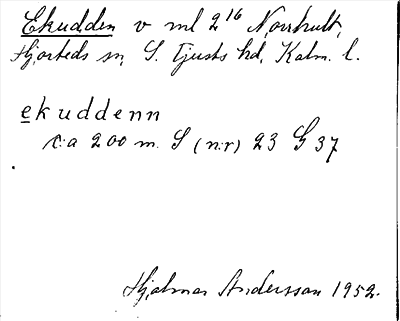 Ekudden v ml 2¹⁶ Norrhult,
Hjorteds sn, S. Tjusts hd, Kalm. l.
ekuddenn
c:a 200 m. S (n:r) 23 G 37
Hjalmar Andersson 1952.